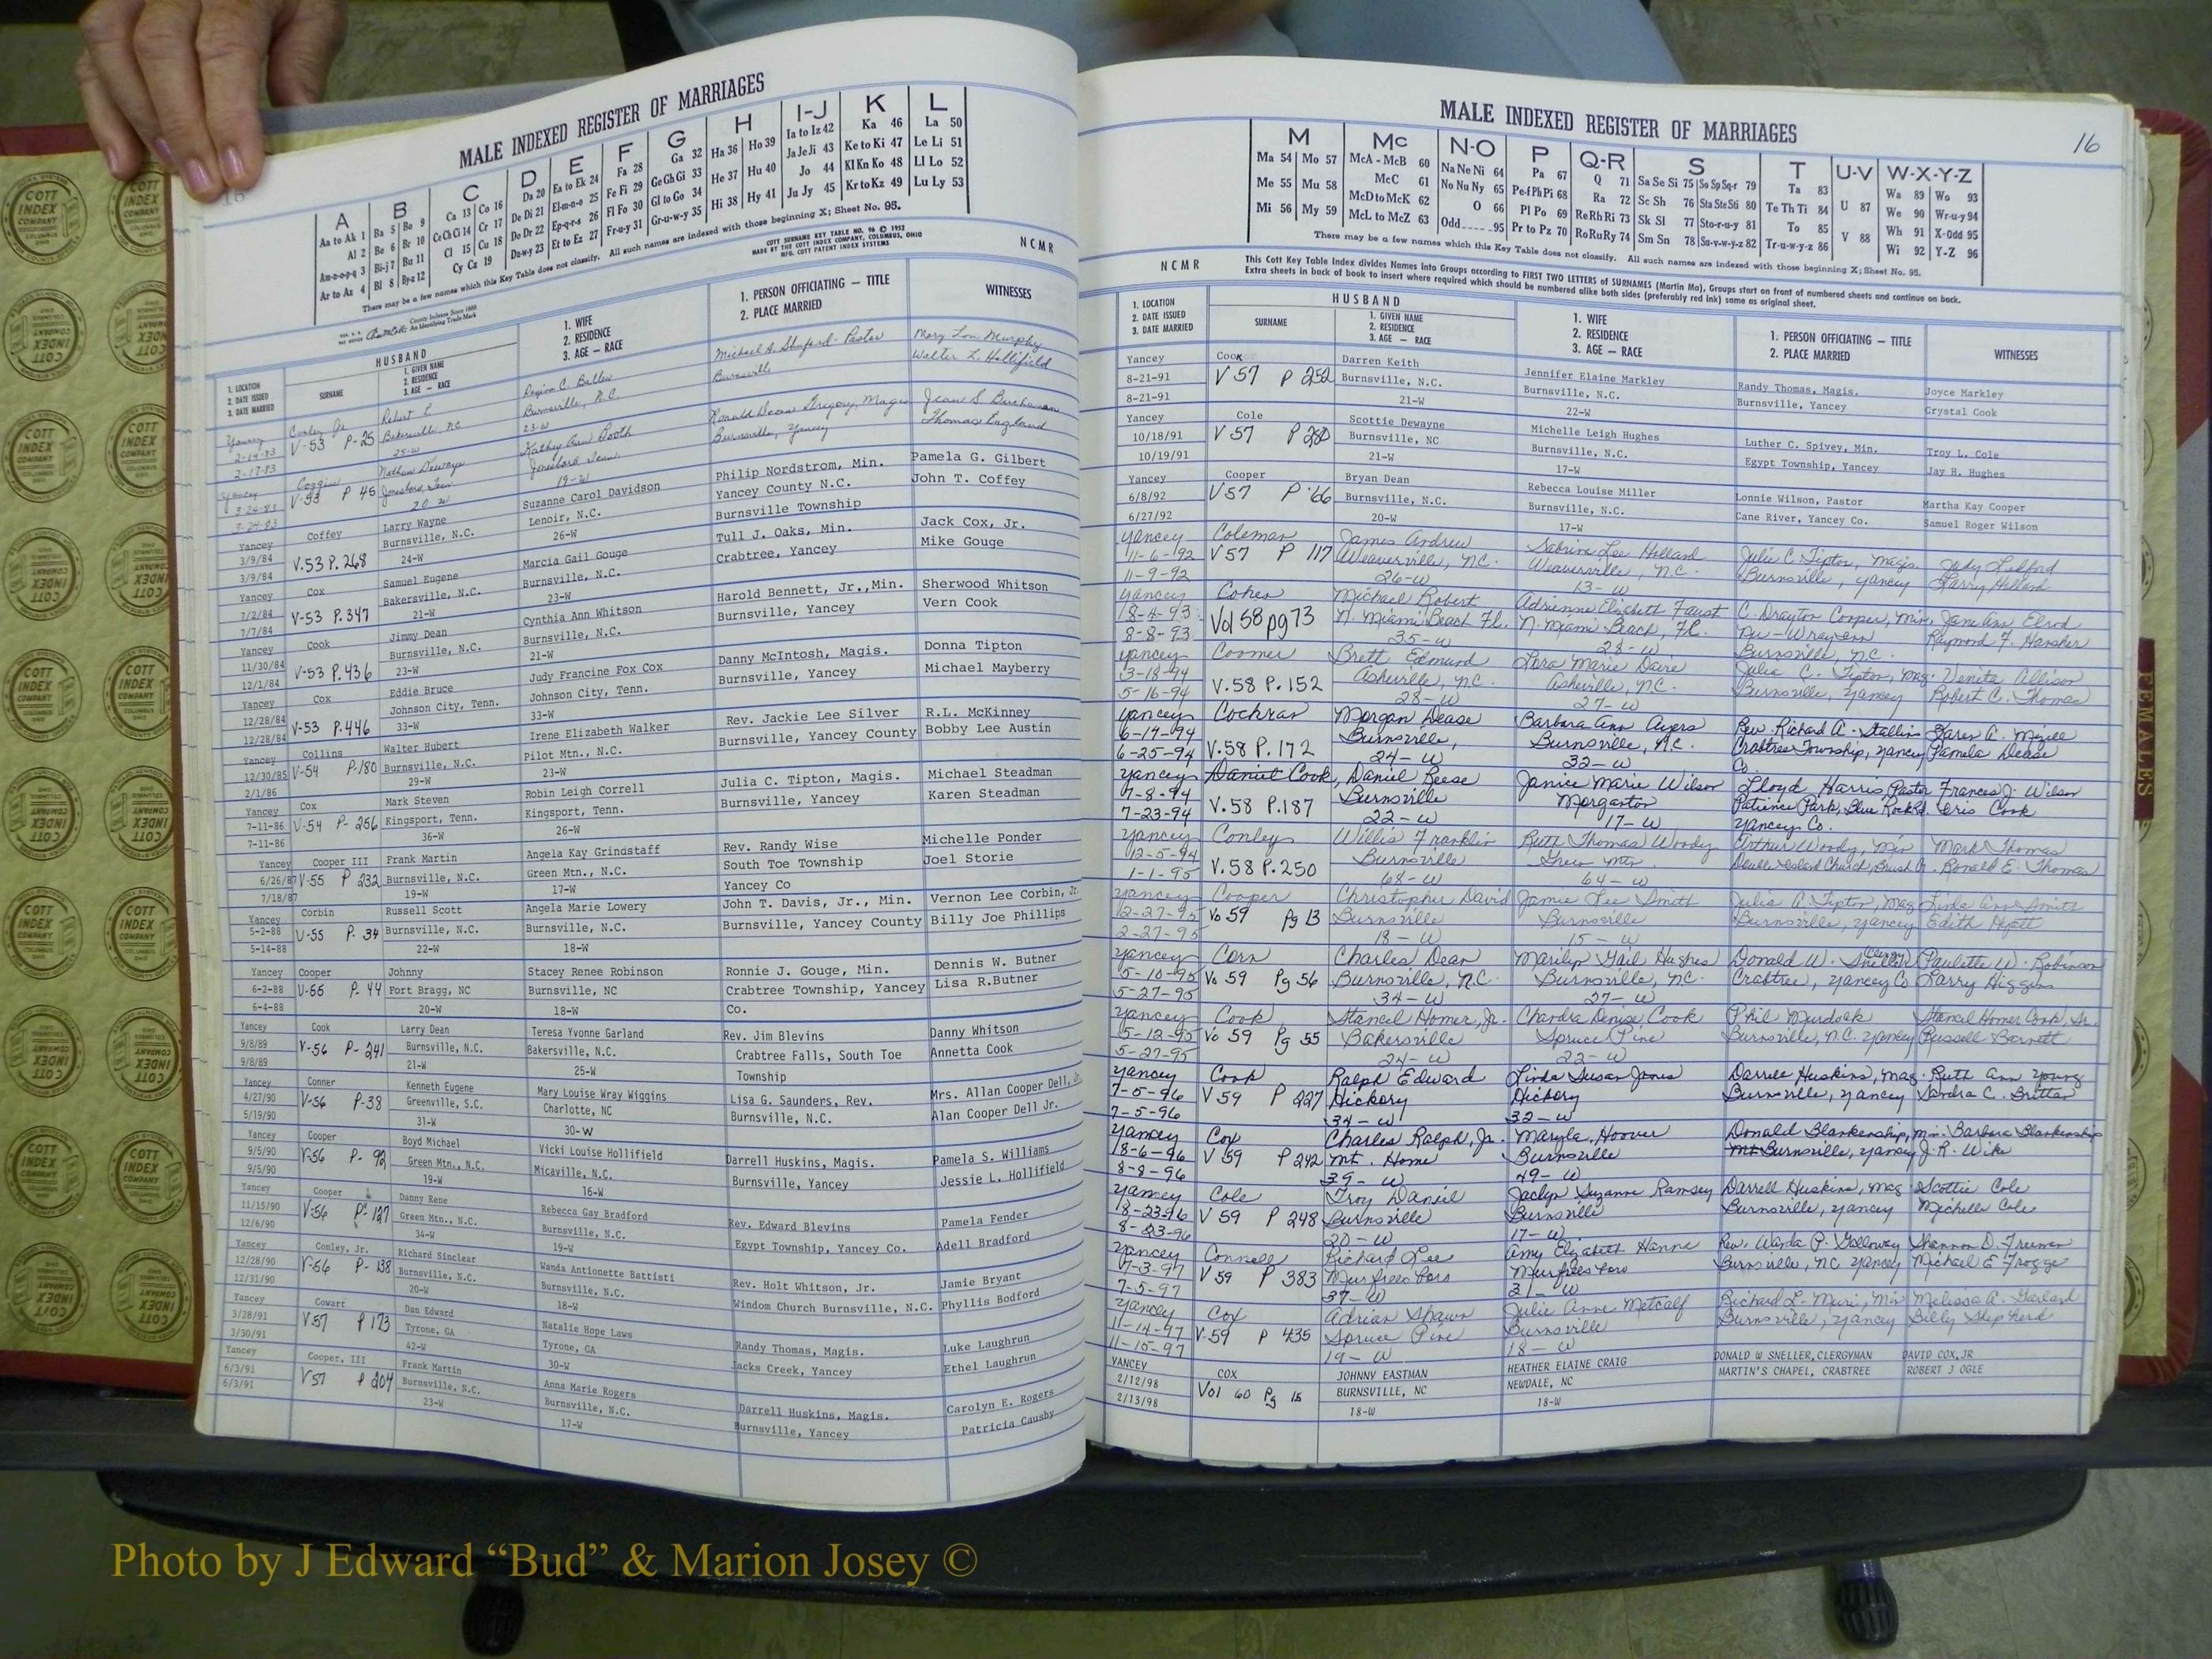 MALE INDEXED REGISTER OF MARRIAGES
A B C D E F G H I-J K L
Aa to Ak 1 Ba 5 Bo 9 Ca 13 Co 16 Da 20 Ea to Ek 24 Fa 28 Ga 32 Ha 36 Ho 39 Ia to Iz 42 Ka 46 La 50
Al 2 Be 6 Br 10 Ce Ch Ci 14 Cr 17 De Di 21 El-m-n-o 25 Fe Fi 29 Ge Gh Gi 33 He 37 Hu 40 Ja Je Ji 43 Ke to Ki 47 Le Li 51
Am-n-o-p-q 3 Bi-j 7 Bu 11 Cl 15 Cu 18 Do Dr 22 Ep-q-r-s 26 Fl Fo 30 Gl to Go 34 Hi 38 Hy 41 Jo 44 Kl Kn Ko 48 Ll Lo 52
Ar to Az 4 Bl 8 By-z 12 Cy Cz 19 Du-w-y 23 Et to Ez 27 Fr-u-y 31 Gr-u-w-y 35 Ju Jy 45 Kr to Kz 49 Lu Ly 53
There may be a few names which this Key Table does not classify. All such names are indexed with those beginning X; Sheet No. 95.
COTT SURNAME KEY TABLE NO. 96 © 1952
MADE BY THE COTT INDEX COMPANY, COLUMBUS, OHIO
MFG. COTT PATENT INDEX SYSTEMS
NCMR
County Indexes Since 1888
An Identifying Trade Mark
HUSBAND
1. LOCATION
2. DATE ISSUED
3. DATE MARRIED
SURNAME
1. GIVEN NAME
2. RESIDENCE
3. AGE — RACE
1. WIFE
2. RESIDENCE
3. AGE — RACE
1. PERSON OFFICIATING — TITLE
2. PLACE MARRIED
WITNESSES
Yancey Conley Jr Robert L Regina C. Ballew Michael A. Shuford - Pastor Mary Lou Murphy
2-14-83 V-53 P-25 Bakersville, NC Burnsville, N.C. Burnsville Walter L. Hollifield
2-17-83 25-W 23-W
Yancey Coggins Nathan Dewayne Kathy Ann Booth Ronald Dean Gregory, Magis Jean S. Buchanan
3-24-83 V-53 P 45 Jonesboro, Tenn Jonesboro Tenn. Burnsville, Yancey Thomas England
3-24-83 20 W 19-W
Yancey Coffey Larry Wayne Suzanne Carol Davidson Philip Nordstrom, Min. Pamela G. Gilbert
3/9/84 V.53 P. 268 Burnsville, N.C. Lenoir, N.C. Yancey County N.C. John T. Coffey
3/9/84 24-W 26-W Burnsville Township
Yancey Cox Samuel Eugene Marcia Gail Gouge Tull J. Oaks, Min. Jack Cox, Jr.
7/2/84 V-53 P.347 Bakersville, N.C. Burnsville, N.C. Crabtree, Yancey Mike Gouge
7/7/84 21-W 23-W
Yancey Cook Jimmy Dean Cynthia Ann Whitson Harold Bennett, Jr.,Min. Sherwood Whitson
11/30/84 V-53 P.436 Burnsville, N.C. Burnsville, N.C. Burnsville, Yancey Vern Cook
12/1/84 23-W 21-W
Yancey Cox Eddie Bruce Judy Francine Fox Cox Danny McIntosh, Magis. Donna Tipton
12/28/84 V-53 P.446 Johnson City, Tenn. Johnson City, Tenn. Burnsville, Yancey Michael Mayberry
12/28/84 33-W 33-W
Yancey Collins Walter Hubert Irene Elizabeth Walker Rev. Jackie Lee Silver R.L. McKinney
12/30/85 V-54 P.180 Burnsville, N.C. Pilot Mtn., N.C. Burnsville, Yancey County Bobby Lee Austin
2/1/86 29-W 23-W
Yancey Cox Mark Steven Robin Leigh Correll Julia C. Tipton, Magis. Michael Steadman
7-11-86 V-54 P- 256 Kingsport, Tenn. Kingsport, Tenn. Burnsville, Yancey Karen Steadman
7-11-86 36-W 26-W
Yancey Cooper III Frank Martin Angela Kay Grindstaff Rev. Randy Wise Michelle Ponder
6/26/87 V-55 P 232 Burnsville, N.C. Green Mtn., N.C. South Toe Township Joel Storie
7/18/87 19-W 17-W Yancey Co
Yancey Corbin Russell Scott Angela Marie Lowery John T. Davis, Jr., Min. Vernon Lee Corbin, Jr.
5-2-88 V-55 P. 34 Burnsville, N.C. Burnsville, N.C. Burnsville, Yancey County Billy Joe Phillips
5-14-88 22-W 18-W
Yancey Cooper Johnny Stacey Renee Robinson Ronnie J. Gouge, Min. Dennis W. Butner
6-2-88 V-55 P. 44 Fort Bragg, NC Burnsville, NC Crabtree Township, Yancey Lisa R.Butner
6-4-88 20-W 18-W Co.
Yancey Cook Larry Dean Teresa Yvonne Garland Rev. Jim Blevins Danny Whitson
9/8/89 V-56 P- 241 Burnsville, N.C. Bakersville, N.C. Crabtree Falls, South Toe Annetta Cook
9/8/89 21-W 25-W Township
Yancey Conner Kenneth Eugene Mary Louise Wray Wiggins Lisa G. Saunders, Rev. Mrs. Allan Cooper Dell, Jr.
4/27/90 V-56 P-38 Greenville, S.C. Charlotte, NC Burnsville, N.C. Alan Cooper Dell Jr.
5/19/90 31-W 30-W
Yancey Cooper Boyd Michael Vicki Louise Hollifield Darrell Huskins, Magis. Pamela S. Williams
9/5/90 V-56 P- 92 Green Mtn., N.C. Micaville, N.C. Burnsville, Yancey Jessie L. Hollifield
9/5/90 19-W 16-W
Yancey Cooper Danny Rene Rebecca Gay Bradford Rev. Edward Blevins Pamela Fender
11/15/90 V-56 P- 127 Green Mtn., N.C. Burnsville, N.C. Egypt Township, Yancey Co. Adell Bradford
12/6/90 34-W 19-W
Yancey Conley, Jr. Richard Sinclear Wanda Antionette Battisti Rev. Holt Whitson, Jr. Jamie Bryant
12/28/90 V-56 P- 138 Burnsville, N.C. Burnsville, N.C. Windom Church Burnsville, N.C. Phyllis Bodford
12/31/90 20-W 18-W
Yancey Cowart Dan Edward Natalie Hope Laws Randy Thomas, Magis. Luke Laughrun
3/28/91 V57 P 173 Tyrone, GA Tyrone, GA Jacks Creek, Yancey Ethel Laughrun
3/30/91 42-W 30-W
Yancey Cooper, III Frank Martin Anna Marie Rogers Darrell Huskins, Magis. Carolyn E. Rogers
6/3/91 V57 P 204 Burnsville, N.C. Burnsville, N.C. Burnsville, Yancey Patricia Causby
6/3/91 23-W 17-W
MALE INDEXED REGISTER OF MARRIAGES
16
M Mc N-O P Q-R S T U-V W-X-Y-Z
Ma 54 Mo 57 McA - McB 60 Na Ne Ni 64 Pa 67 Q 71 Sa Se Si 75 So Sp Sq-r 79 Ta 83 U 87 Wa 89 Wo 93
Me 55 Mu 58 McC 61 No Nu Ny 65 Pe-f Ph Pi 68 Ra 72 Sc Sh 76 Sta Ste Sti 80 Te Th Ti 84 V 88 We 90 Wr-u-y 94
Mi 56 My 59 McD to McK 62 O 66 Pl Po 69 Re Rh Ri 73 Sk Sl 77 Sto-r-u-y 81 To 85 Wh 91 X-Odd 95
McL to McZ 63 Odd 95 Pr to Pz 70 Ro Ru Ry 74 Sm Sn 78 Su-v-w-y-z 82 Tr-u-w-y-z 86 Wi 92 Y-Z 96
There may be a few names which this Key Table does not classify. All such names are indexed with those beginning X; Sheet No. 95.
NCMR
This Cott Key Table Index divides Names into Groups according to FIRST TWO LETTERS of SURNAMES (Martin Ma), Groups start on front of numbered sheets and continue on back.
Extra sheets in back of book to insert where required which should be numbered alike both sides (preferably red ink) same as original sheet.
HUSBAND
1. LOCATION
2. DATE ISSUED
3. DATE MARRIED
SURNAME
1. GIVEN NAME
2. RESIDENCE
3. AGE — RACE
1. WIFE
2. RESIDENCE
3. AGE — RACE
1. PERSON OFFICIATING — TITLE
2. PLACE MARRIED
WITNESSES
Yancey Cook Darren Keith Jennifer Elaine Markley Randy Thomas, Magis. Joyce Markley
8-21-91 V 57 P 252 Burnsville, N.C. Burnsville, N.C. Burnsville, Yancey Crystal Cook
8-21-91 21-W 22-W
Yancey Cole Scottie Dewayne Michelle Leigh Hughes Luther C. Spivey, Min. Troy L. Cole
10/18/91 V 57 P 280 Burnsville, NC Burnsville, N.C. Egypt Township, Yancey Jay H. Hughes
10/19/91 21-W 17-W
Yancey Cooper Bryan Dean Rebecca Louise Miller Lonnie Wilson, Pastor Martha Kay Cooper
6/8/92 V57 P 66 Burnsville, N.C. Burnsville, N.C. Cane River, Yancey Co. Samuel Roger Wilson
6/27/92 20-W 17-W
Yancey Coleman James Andrew Sabrina Lee Holland Julie C. Tipton, Magis. Judy Ledford
11-6-92 V57 P 117 Weaverville, N.C. Weaverville, N.C. Burnsville, Yancey Larry Holland
11-9-92 26-W 13-W
Yancey Cohen Michael Robert Adrienne Elizabeth Faust C. Drayton Cooper, Min, Jane Ann Elrod
8-4-93 Vol 58 pg 73 N. Miami Beach Fl. N. Miami Beach, FL. Nu-Wray Inn Raymond F. Harsher
8-8-93 35-W 28-W Burnsville, N.C.
Yancey Coomer Brett Edmund Lora Marie Daire Julia C. Tipton, Mag. Venita Allison
3-18-94 V.58 P.152 Asheville, N.C. Asheville, N.C. Burnsville, Yancey Robert C. Thomas
5-16-94 28-W 27-W
Yancey Cochran Morgan Dease Barbara Ann Ayers Rev. Richard A. Stallin Karen A. Mezell
6-17-94 Burnsville, Burnsville, N.C. Crabtree Township, Yancey Pamela Dease
6-25-94 V.58 P.172 24-W 32-W Co.
Yancey Daniel Cook, Daniel Reese Janice Marie Wilson Lloyd Harris, Pastor Frances J. Wilson
7-8-94 V.58 P.187 Burnsville Morganton Patience Park, Blue Rock Rd. Eris Cook
7-23-94 22-W 17-W Yancey Co.
Yancey Conley Willis Franklin Ruth Thomas Woody Arthur Woody, Min Mark Thomas
12-5-94 V.58 P.250 Burnsville Green Mtn. Double Island Church, Brush C. Ronald E. Thomas
1-1-95 68-W 64-W
Yancey Cooper Christopher David Jamie Lee Smith Julia A. Tipton, Mag Linda Ann Smith
2-27-95 Vo 59 Pg 13 Burnsville Burnsville Burnsville, Yancey Edith Hyatt
2-27-95 18-W 15-W
Yancey Corn Charles Dean Marilyn Gail Hughes Donald W. Sneller Clergy Paulette W. Robinson
5-10-95 Vo 59 Pg 56 Burnsville, N.C. Burnsville, N.C. Crabtree, Yancey Co Larry Higgins
5-27-95 34-W 27-W
Yancey Cook Stancil Homer, Jr. Chandra Denise Cook Phil Murdock Stancil Homer Cook, Sr.
5-12-95 Vo 59 Pg 55 Bakersville Spruce Pine Burnsville, N.C. Yancey Russell Barnett
5-27-95 24-W 22-W
Yancey Cook Ralph Edward Linda Susan Jones Darrell Huskins, Mag. Ruth Ann Young
7-5-96 V 59 P 227 Hickory Hickory Burnsville, Yancey Sandra C. Britton
7-5-96 34-W 32-W
Yancey Cox Charles Ralph, Jr. Maryla Hoover Donald Blankenship, Min. Barbara Blankenship
8-6-96 V 59 P 242 Mt. Home Burnsville Burnsville, Yancey J.R. Wike
8-8-96 39-W 49-W
Yancey Cole Troy Daniel Jaclyn Suzanne Ramsey Darrell Huskins, Mag. Scottie Cole
8-23-96 V 59 P 248 Burnsville Burnsville Burnsville, Yancey Michelle Cole
8-23-96 20-W 17-W
Yancey Connell Richard Lee Amy Elizabeth Hanne Rev. Wanda P. Galloway Shannon D. Freeman
7-3-97 V 59 P 383 Murfreesboro Murfreesboro Burnsville, NC Yancey Michael E Frogge
7-5-97 37-W 31-W
Yancey Cox Adrian Shawn Julie Anne Metcalf Richard L. Muri, Min Melissa A. Garland
11-14-97 V-59 P 435 Spruce Pine Burnsville Burnsville, Yancey Billy Shepherd
11-15-97 19-W 18-W
YANCEY COX JOHNNY EASTMAN HEATHER ELAINE CRAIG DONALD W SNELLER, CLERGYMAN DAVID COX, JR
2/12/98 Vol 60 Pg 15 BURNSVILLE, NC NEWDALE, NC MARTIN'S CHAPEL, CRABTREE ROBERT J OGLE
2/13/98 18-W 18-W
FEMALES
COTT INDEX COMPANY
Photo by J Edward “Bud” & Marion Josey ©